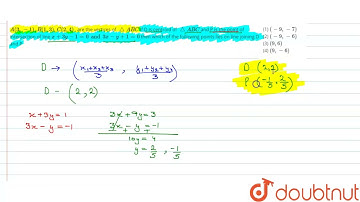 A(1, −1), B(1, 3), C(2, 4) are the vertices of △ ABC. If G is centroid of △ ABC and P is the point of
intersection of line x + 3y − 1 = 0 and 3x − y + 1 = 0 then which of the following points lies on line joining
(1) (−9, −7)
(2) (−9, −6)
(3) (9, 6)
(4) (9, −6)
D → (x₁+x₂+x₃/3 , y₁+y₂+y₃/3)
D − (2, 2)
D (2,2)
P (−1/5, 2/5)
x + 3y = 1
3x − y = −1
3x + 9y = 3
3x − y = −1
10y = 4
y = 2/5 , −1/5
doubtnut